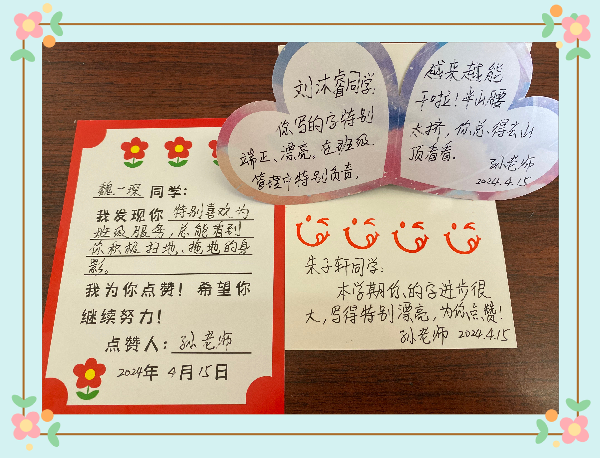 刘沐睿同学:
你写的字特别
端正、漂亮,在班级
管理中特别负责。
越来越能
干啦!半山腰
太挤,你总得去山
顶看看。
孙老师
2024.4.15
魏一琛同学:
我发现你特别喜欢为
班级服务,总能看到
你积极扫地、拖地的身
影。
我为你点赞!希望你
继续努力!
点赞人:孙老师
2024年4月15日
朱子轩同学:
本学期你的字进步很
大,写得特别漂亮,为你点赞!
孙老师 2024.4.15